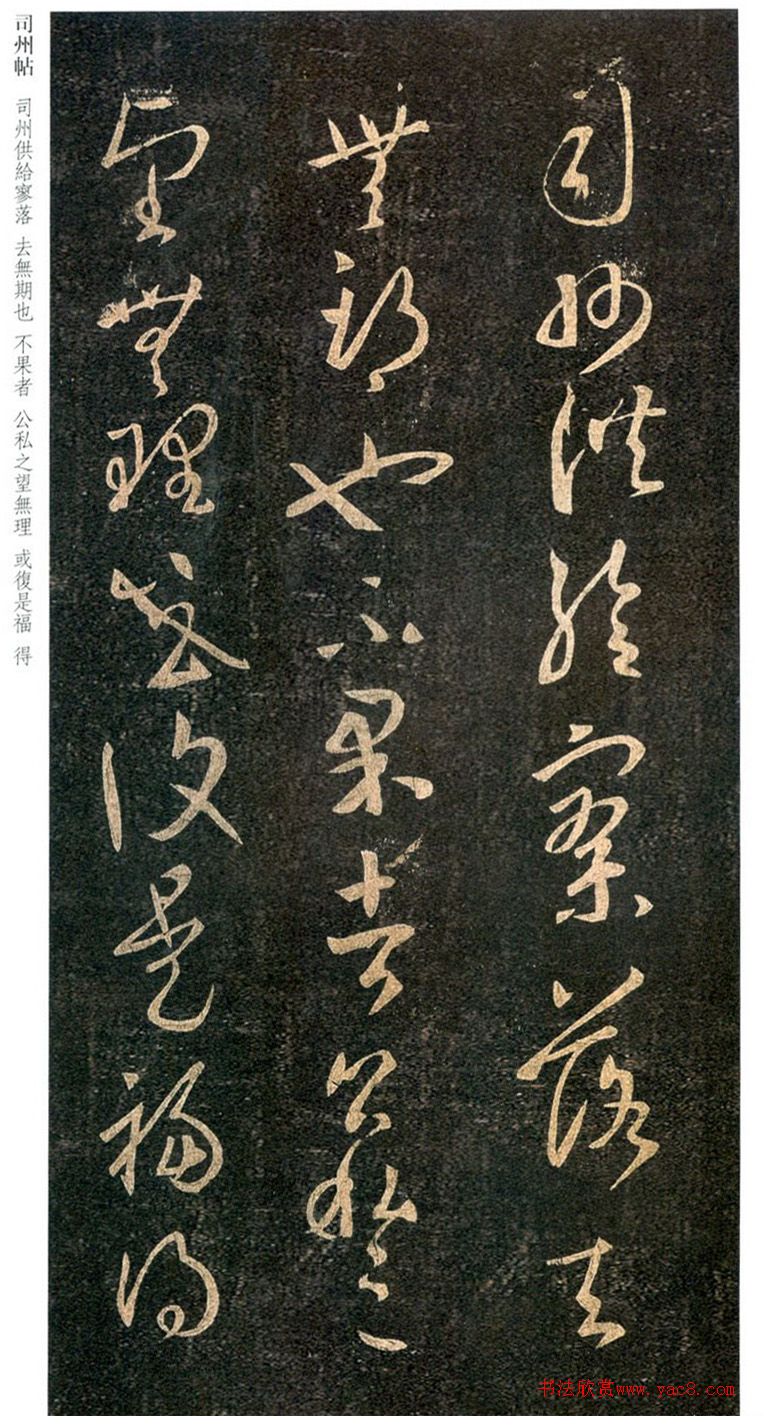 司州供給寥落去
無期也不果者公私之
望無理或復是福得
司州帖 司州供給寥落 去無期也 不果者 公私之望無理 或復是福 得
书法欣赏www.yac8.com